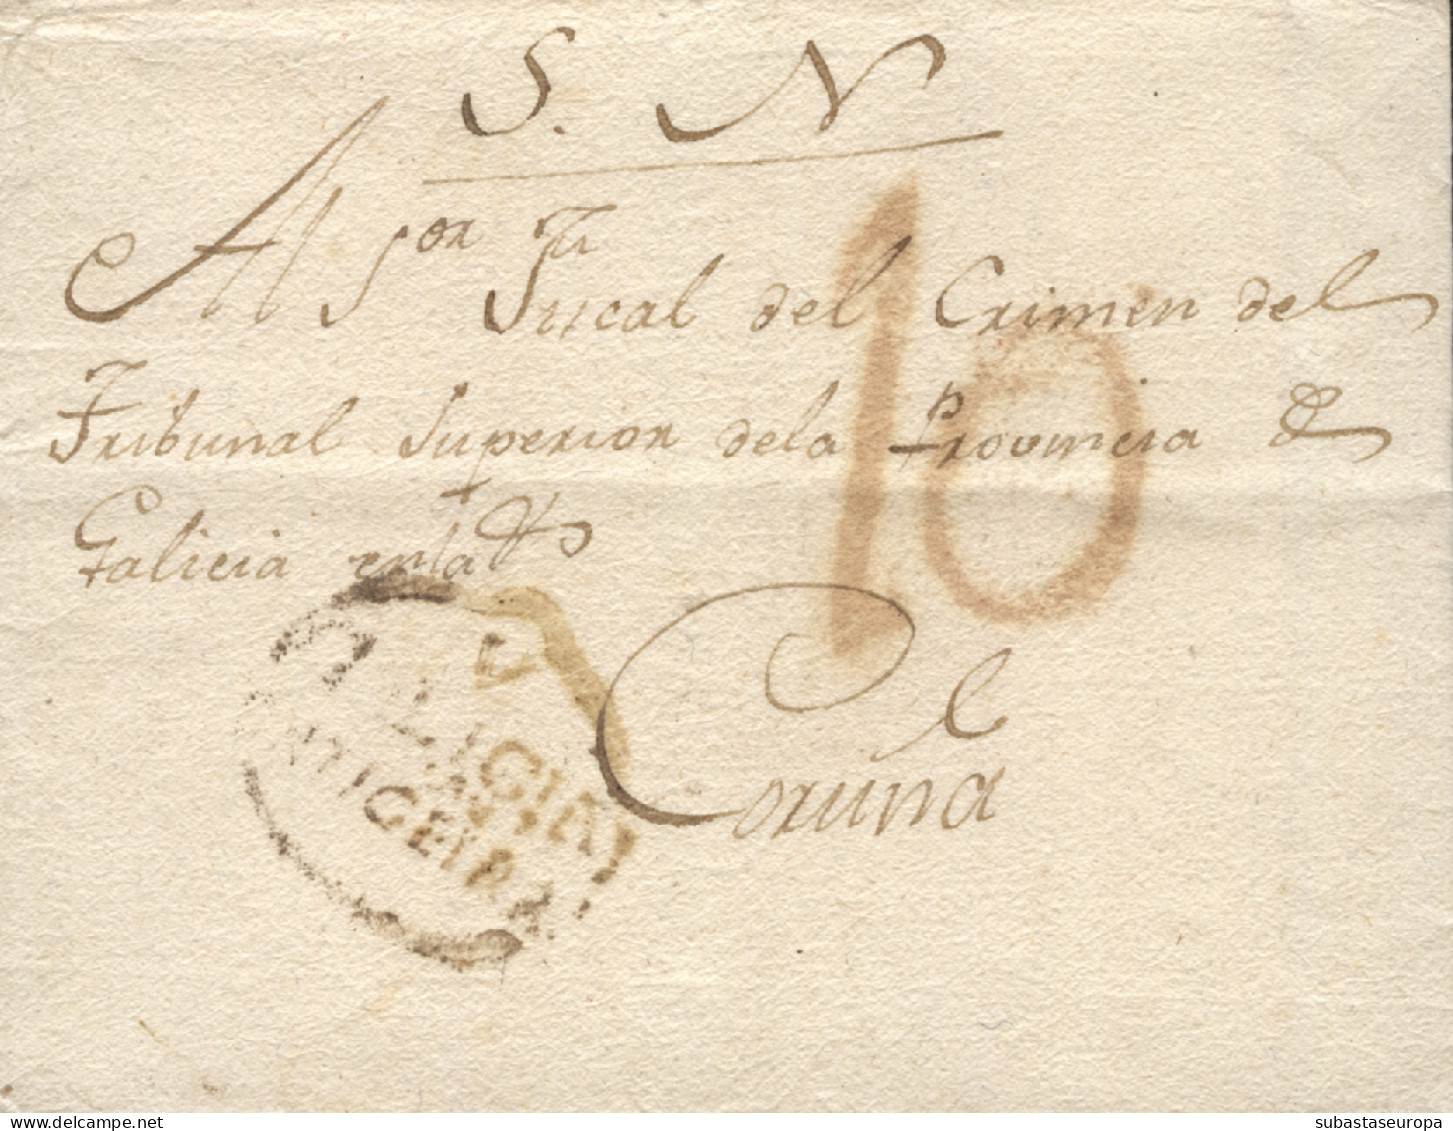 S. N
Al Sor Fiscal del Crimen del
Tribunal Superior dela Provincia de
Galicia enla
Coruña
10
GALICIA
subastaseuropa